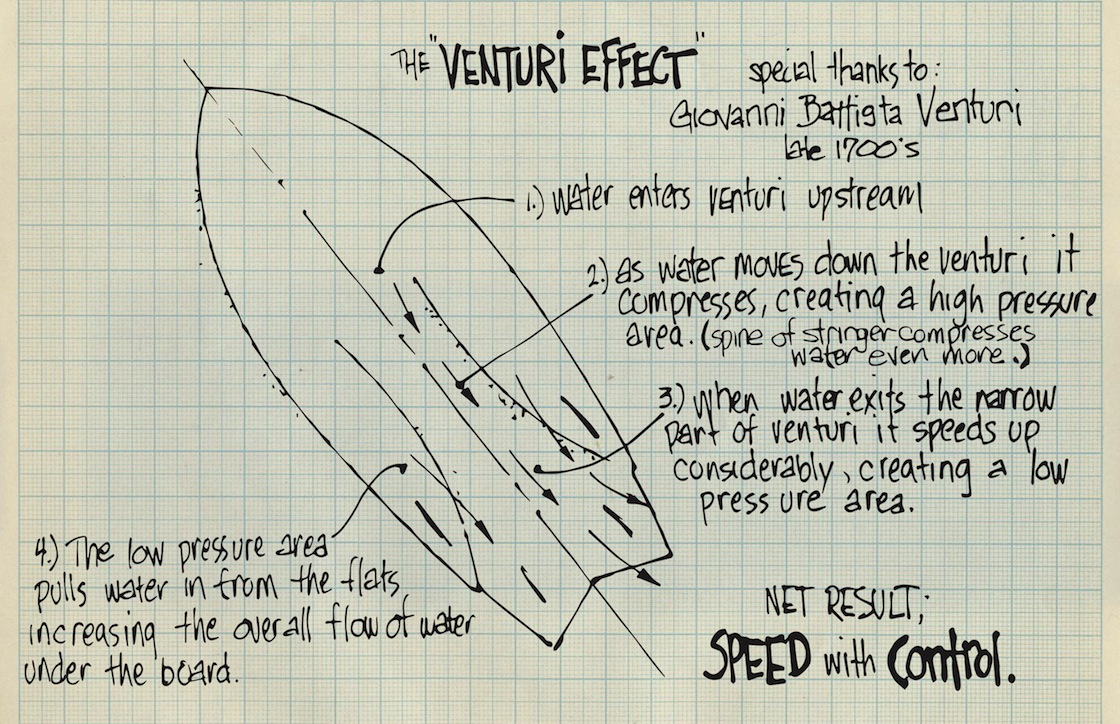 THE "VENTURI EFFECT"
special thanks to:
Giovanni Battista Venturi
late 1700's
1.) Water enters venturi upstream
2.) As water moves down the venturi it
compresses, creating a high pressure
area. (spine of stringer compresses
water even more.)
3.) When water exits the narrow
part of venturi it speeds up
considerably, creating a low
pressure area.
4.) The low pressure area
pulls water in from the flats,
increasing the overall flow of water
under the board.
NET RESULT;
SPEED with Control.